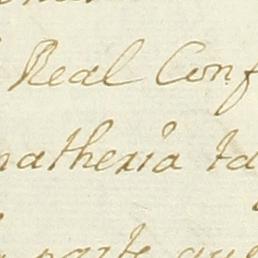 Real Conf
matheria ta
parte que